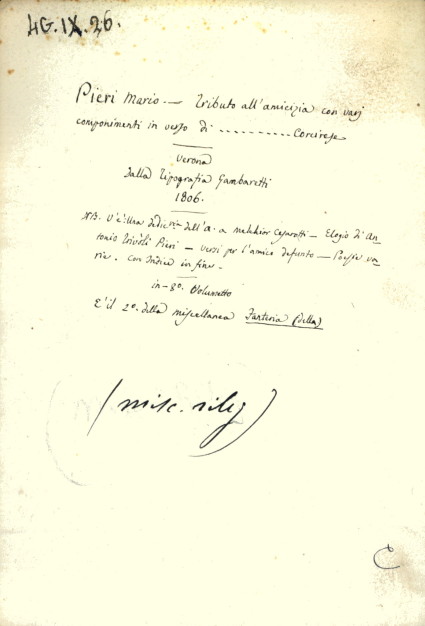 4G.IX.26.
Pieri Mario. — Tributo all'amicizia con varj
componimenti in verso di .......... Corcirese
Verona
Dalla Tipografia Gambaretti
1806.
NB. V'è: Una dedic.ria dell'A. a Melchior Cesarotti — Elogio di An
tonio Trivoli Pieri — versi per l'amico defunto — Poesie va
rie. Con Indice in fine.
in-8°. Volumetto
E' il 2°. della miscellanea Fanteria (della)
(misc. rileg)
C